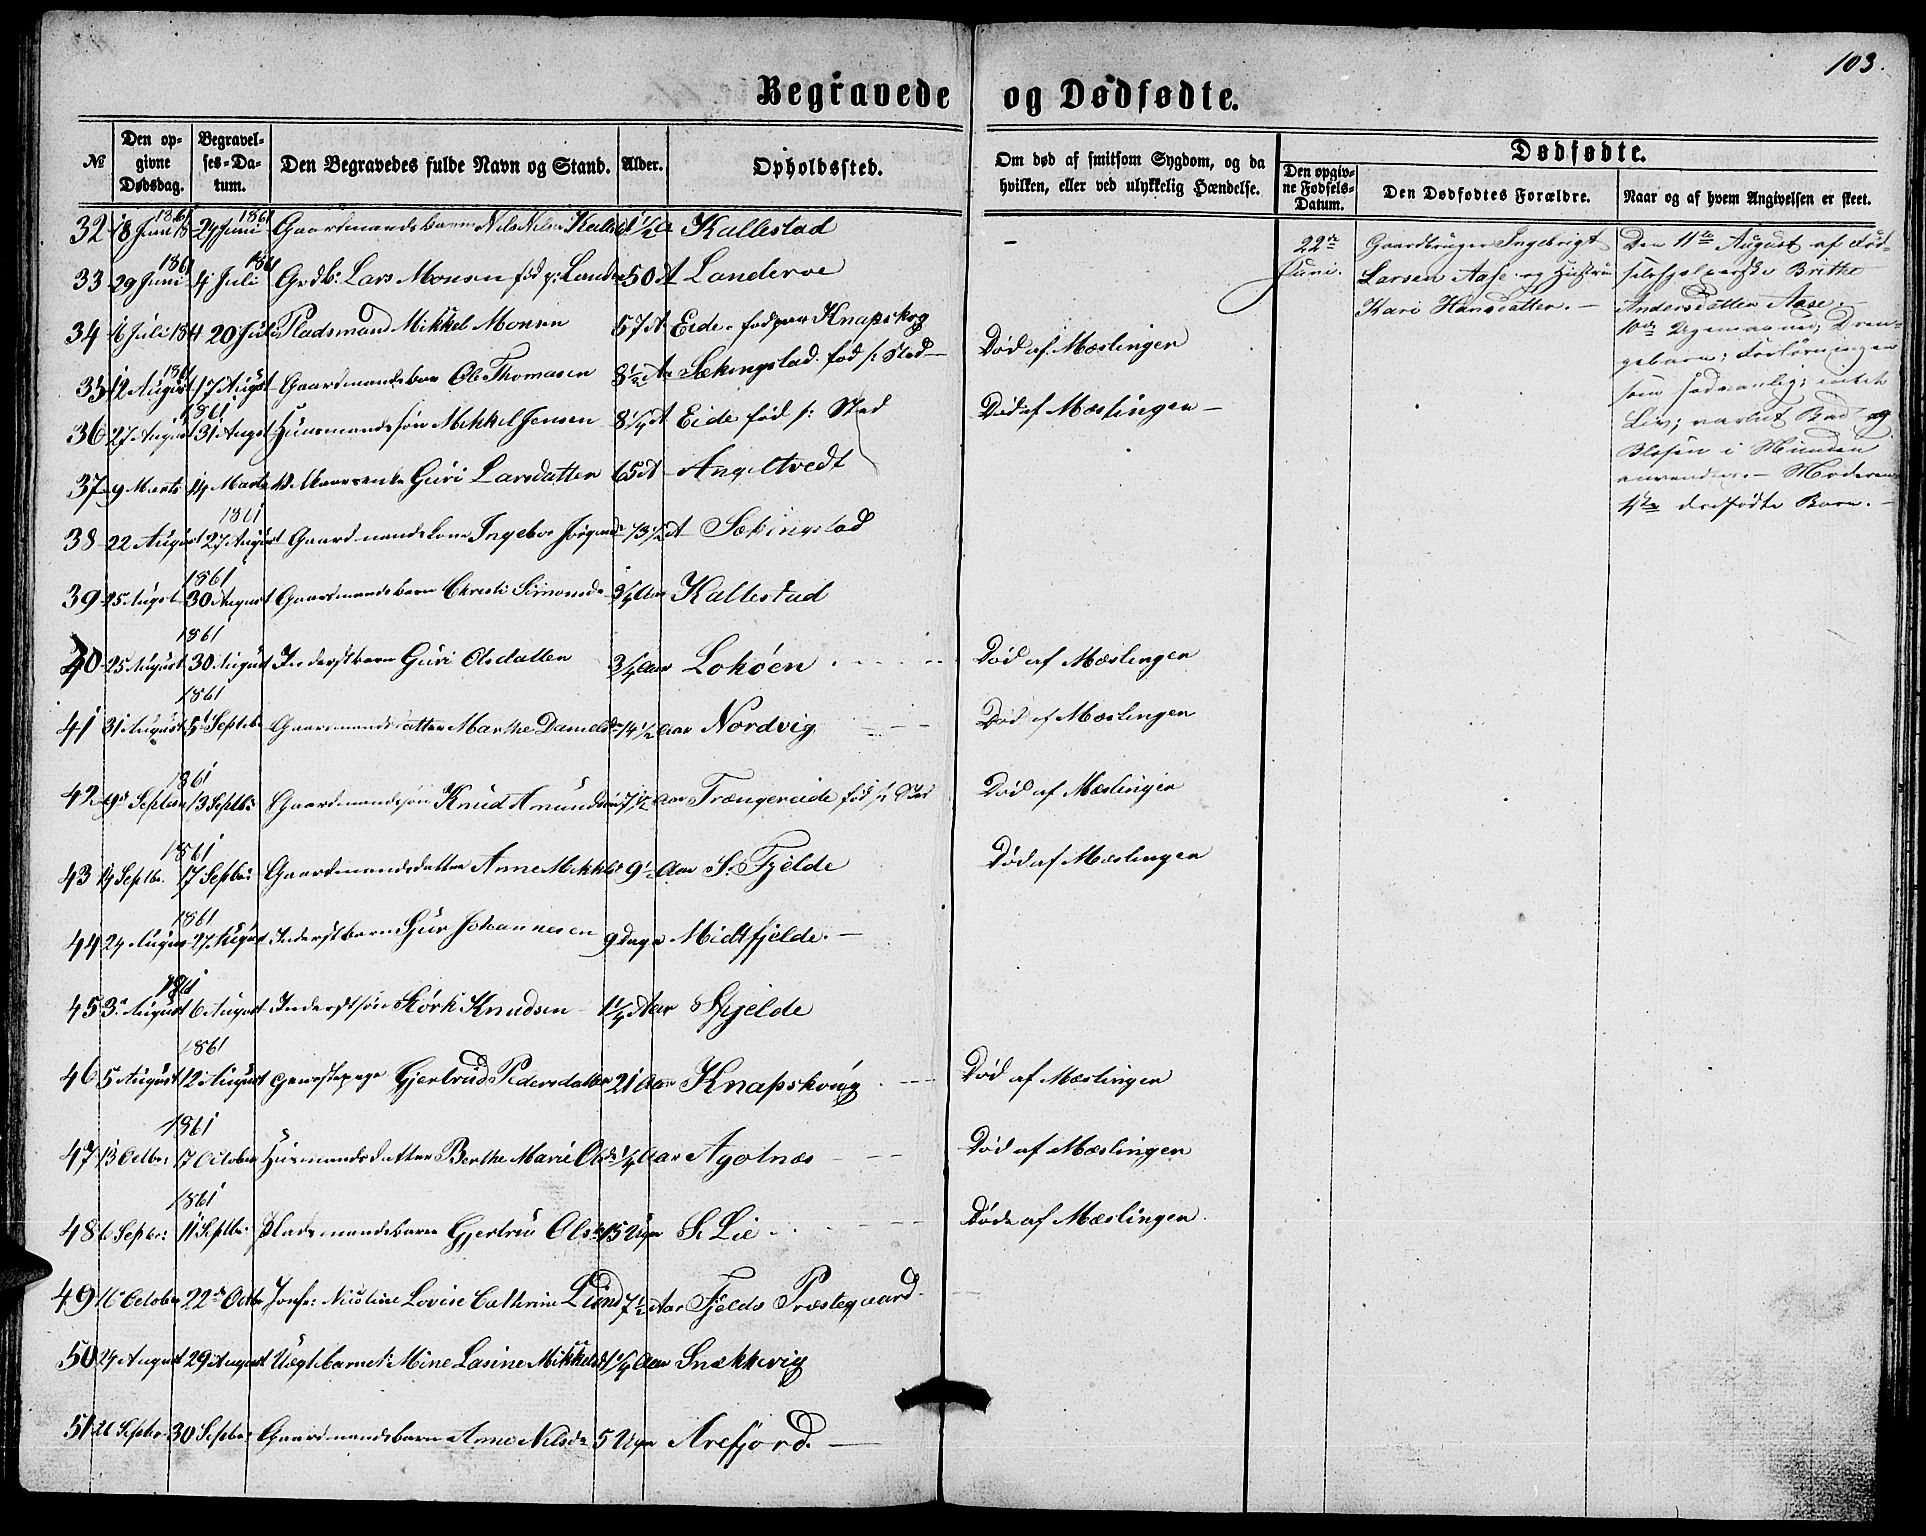 103.
Begravede og Dødfødte.
№
Den op-
givne
Dødsdag.
Begravel-
ses-Da-
tum.
Den Begravedes fulde Navn og Stand.
Alder.
Opholdssted.
Om død af smitsom Sygdom, og da
hvilken, eller ved ulykkelig Hændelse.
Dødfødte.
Den opgiv-
ne Fødsels-
Datum.
Den Dødfødtes Forældre.
Naar og af hvem Angivelsen er skeet.
32 18 Juni 1861 24 Juni 1861 Gaardmandsbarn Nils Nilsen 1½ A Kallestad
33 29 Juni 1861 4 Juli 1861 Grdb: Lars Monsen fød p: 50 A Landeroe
34 16 Juli 20 Juli Pladsmand Mikkel Monsen 57 A Eide fød paa Knapskog Død af Mæslinger
35 12 August 1861 17 August Gaardmandsbarn Ole Thomasen 8½ A Sækingstad fød s: Sted
36 27 August 1861 31 August Huusmandssøn Mikkel Jensen 8¼ A Eide fød s: Sted Død af Mæslingen
37 9 Marts 14 Marts Guri Larsdatter 65 A Angeltvedt
38 22 August 1861 27 August Gaardmandskone Ingebor 73½ A Sækingstad
39 25 August 1861 30 August Gaardmandsbarn Christi Simonsd: ¾ Aar Kallestad
40 25 August 1861 30 August Inderstbarn Guri Olsdatter ¾ Aar Lokøen Død af Mæslingen
41 31 August 1861 5 Septebr Gaardmandsdatter Marthe Danielsd: 14½ Aar Nordvig Død af Mæslingen
42 9 Septbr 1861 13 Septbr Gaardmandssøn Knud Amundsen 7½ Aar Trængereide fød s: Sted Død af Mæslingen
43 14 Septbr. 1861 17 Septbr Gaardmandsdatter Anne Mikkels: 9½ Aar S. Fjelde Død af Mæslingen
44 24 August 1861 27 August Inderstbarn Sjur Johannesen 9 Dage Midtfjelde.
45 3 August 1861 6 August Inderstsøn Størk Knudsen 1¼ Aar Fjelde
46 5 August 1861 12 August Gjertrud Pedersdatter 21 Aar Knapskoug Død af Mæslingen
47 13 Octbr 1861 17 October Husmandsdatter Berthe Marie Olsd: ¼ Aar Agotnæs Død af Mæslingen
48 6 Septbr: 1861 11 Septbr: Pladsmandsbarn Gjertru Olsd: 15 Uger S. Lie Døde af Mæslingen.
49 16 October 22 Octbr Jomfr: Nicoline Lovise Cathrine Lund 7½ Aar Fjelds Præstegaard
50 24 August 29 August Uægtebarnet: Mine Lasine Mikkelsd: ¼ Aar Snekkevig
51 26 Septbr 30 Septbr: Gaardmandsbarn Anne Nilsd: 5 Uger Arefjord.
22de
Juni.
Gaardbruger Ingebrigt
Larsen Aase og Hustru
Kari Hansdatter.
Den 11te August af Fød-
selshjelperske Brithe
Andersdatter Aase.
Dren-
gebarn;
som sædvanlig; intet
Liv; varmt Bad og
Blæsen i Munden
anvendtes. Moderens
4de dødfødte Barn.